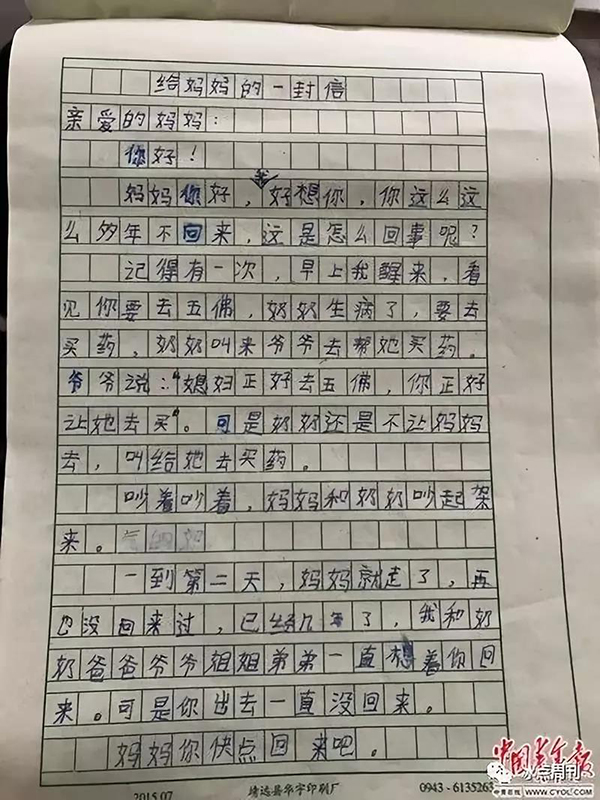 给妈妈的一封信
亲爱的妈妈：
你好！
妈妈你好，我好想你，你这么这
么多年不回来，这是怎么回事呢？
记得有一次，早上我醒来，看
见你要去五佛，奶奶生病了，要去
买药，奶奶叫来爷爷去帮她买药。
爷爷说：“媳妇正好去五佛，你正好
让她去买”。可是奶奶还是不让妈妈
去，叫给她去买药。
吵着吵着，妈妈和奶奶吵起架
来。
一到第二天，妈妈就走了，再
也没回来过，已经几年了，我和奶
奶爸爸爷爷姐姐弟弟一直想着你回
来。可是你出去一直没回来。
妈妈你快点回来吧。
2015.07 靖远县华宇印刷厂 0943-6135263
中国青年报
中青在线 WWW.CYOL.COM